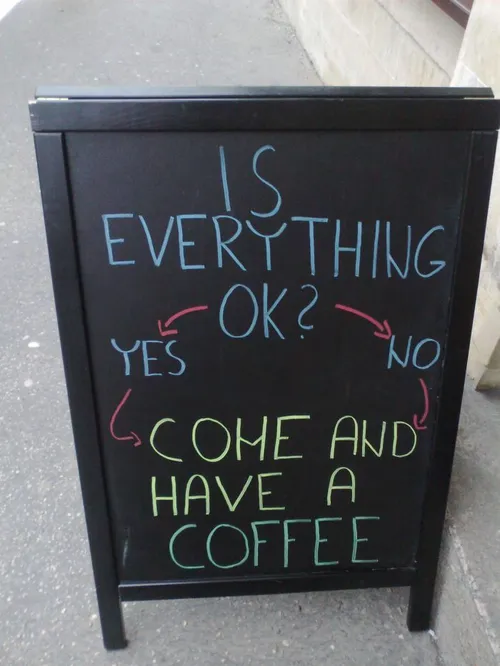 IS
EVERYTHING
OK?
YES NO
COME AND
HAVE A
COFFEE